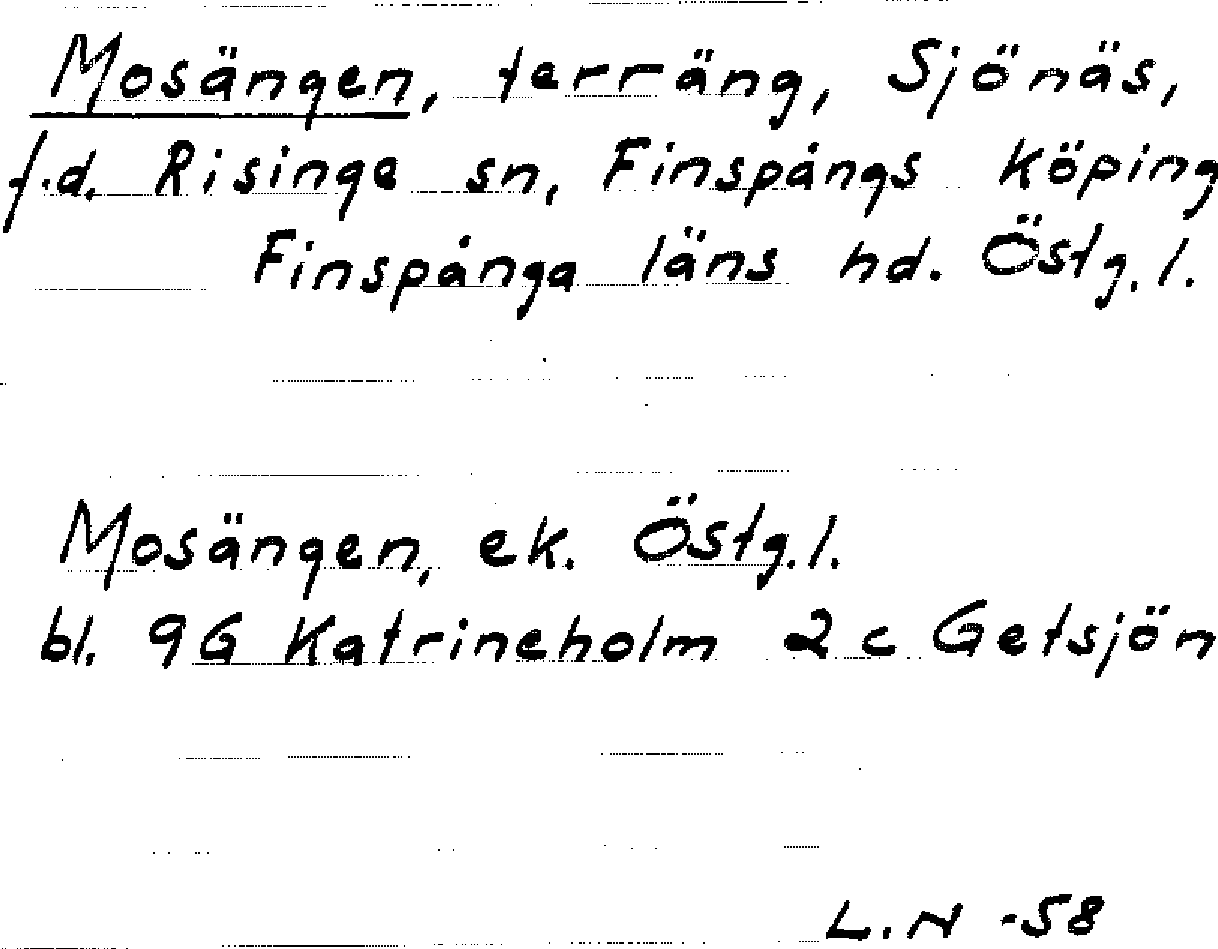 Mosängen, terräng, Sjönäs,
f.d. Risinge sn, Finspångs köping
Finspånga läns hd. Östg.l.
Mosängen, ek. Östg.l.
bl. 9G Katrineholm 2 c Getsjön
L.N -58